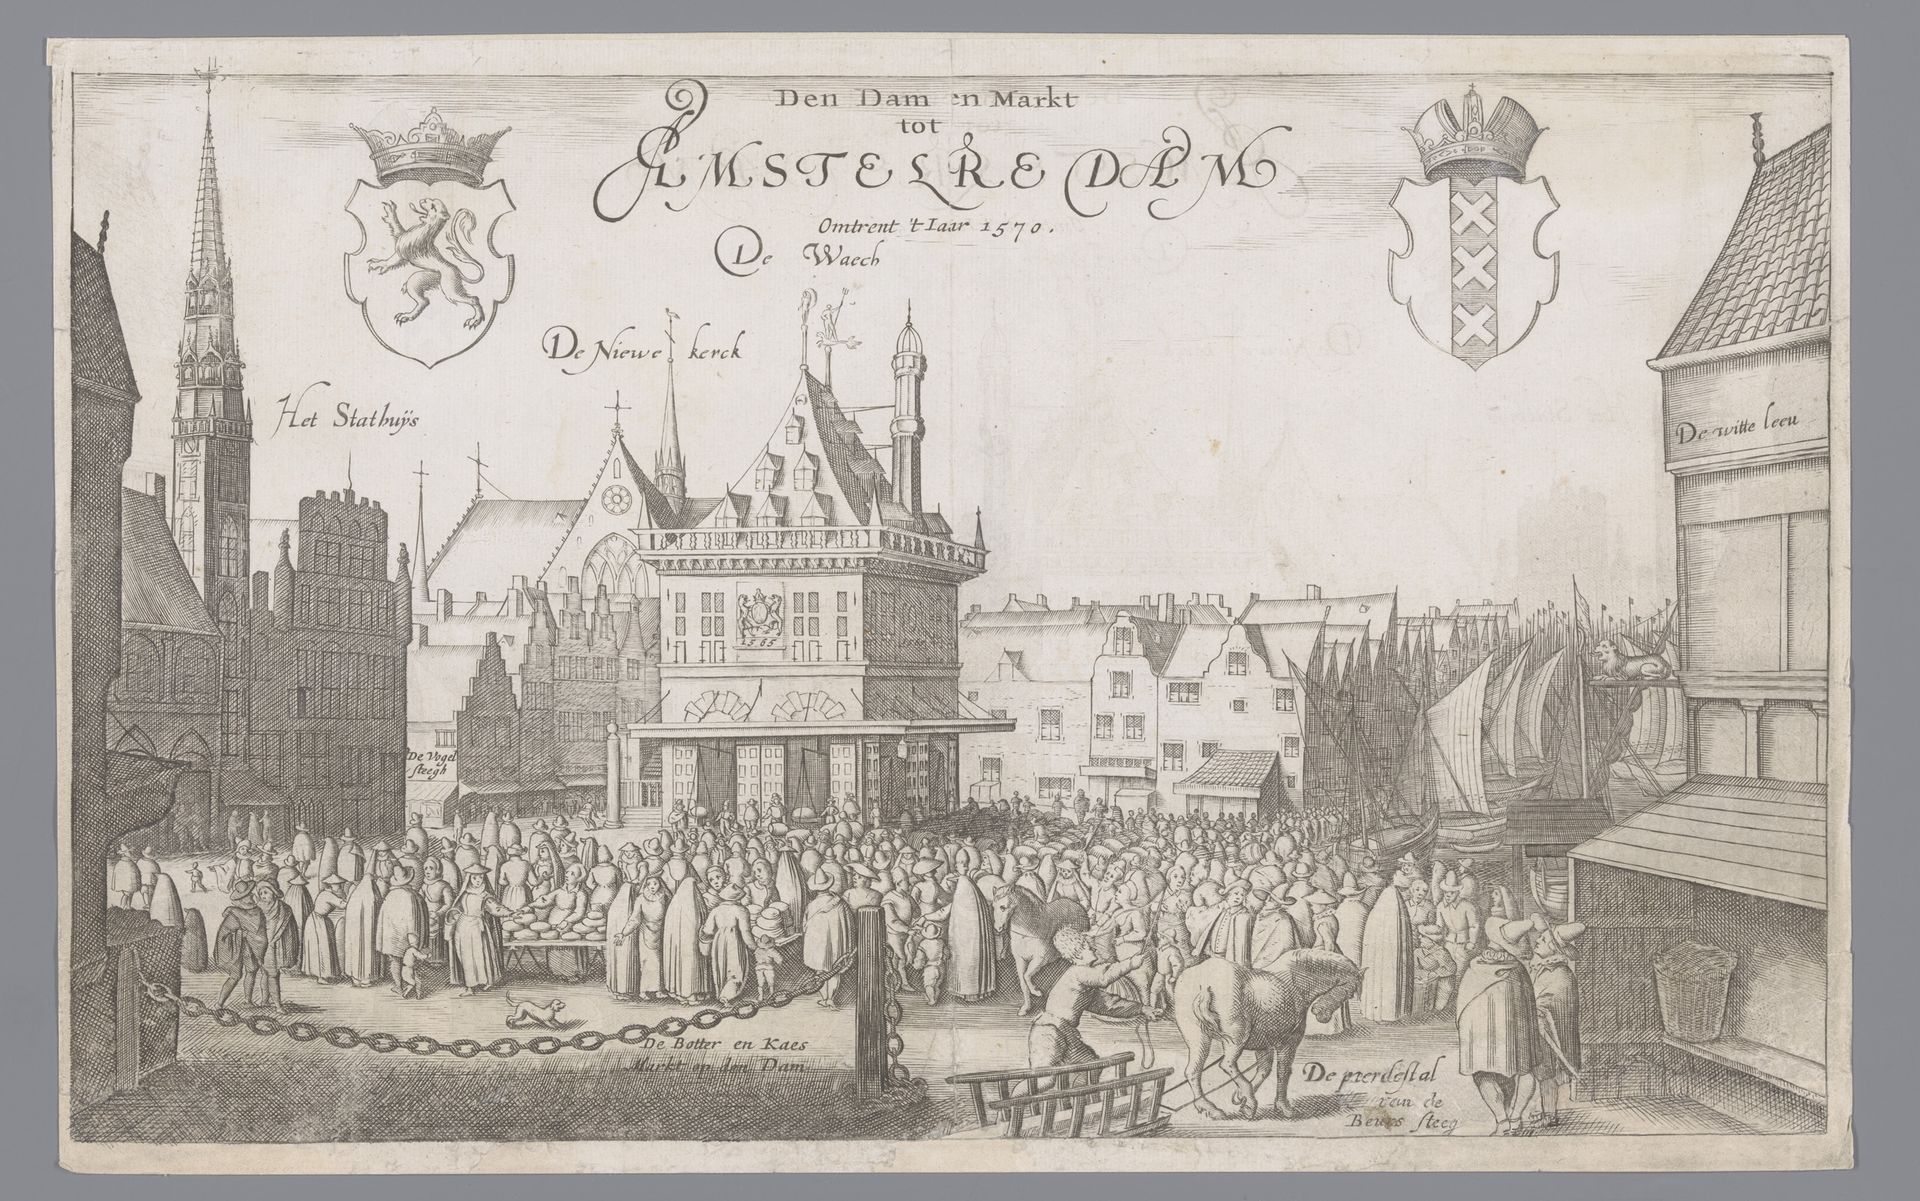 Den Dam en Markt
tot
AMSTELREDAM
Omtrent 't Iaar 1570.
De Waech
De Niewe kerck
Het Stathuÿs
De witte leeu
1565
De Vogel
steegh
De Botter en Kaes
Markt op den Dam
De peerdestal
van de
Beurs steeg